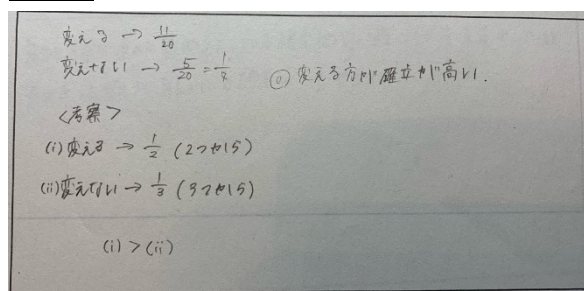 変える → 11/20
変えない → 5/20 = 1/4
◎ 変える方が確立が高い.
<考察>
(i) 変える → 1/2 (2つから)
(ii) 変えない → 1/3 (3つから)
(i) > (ii)